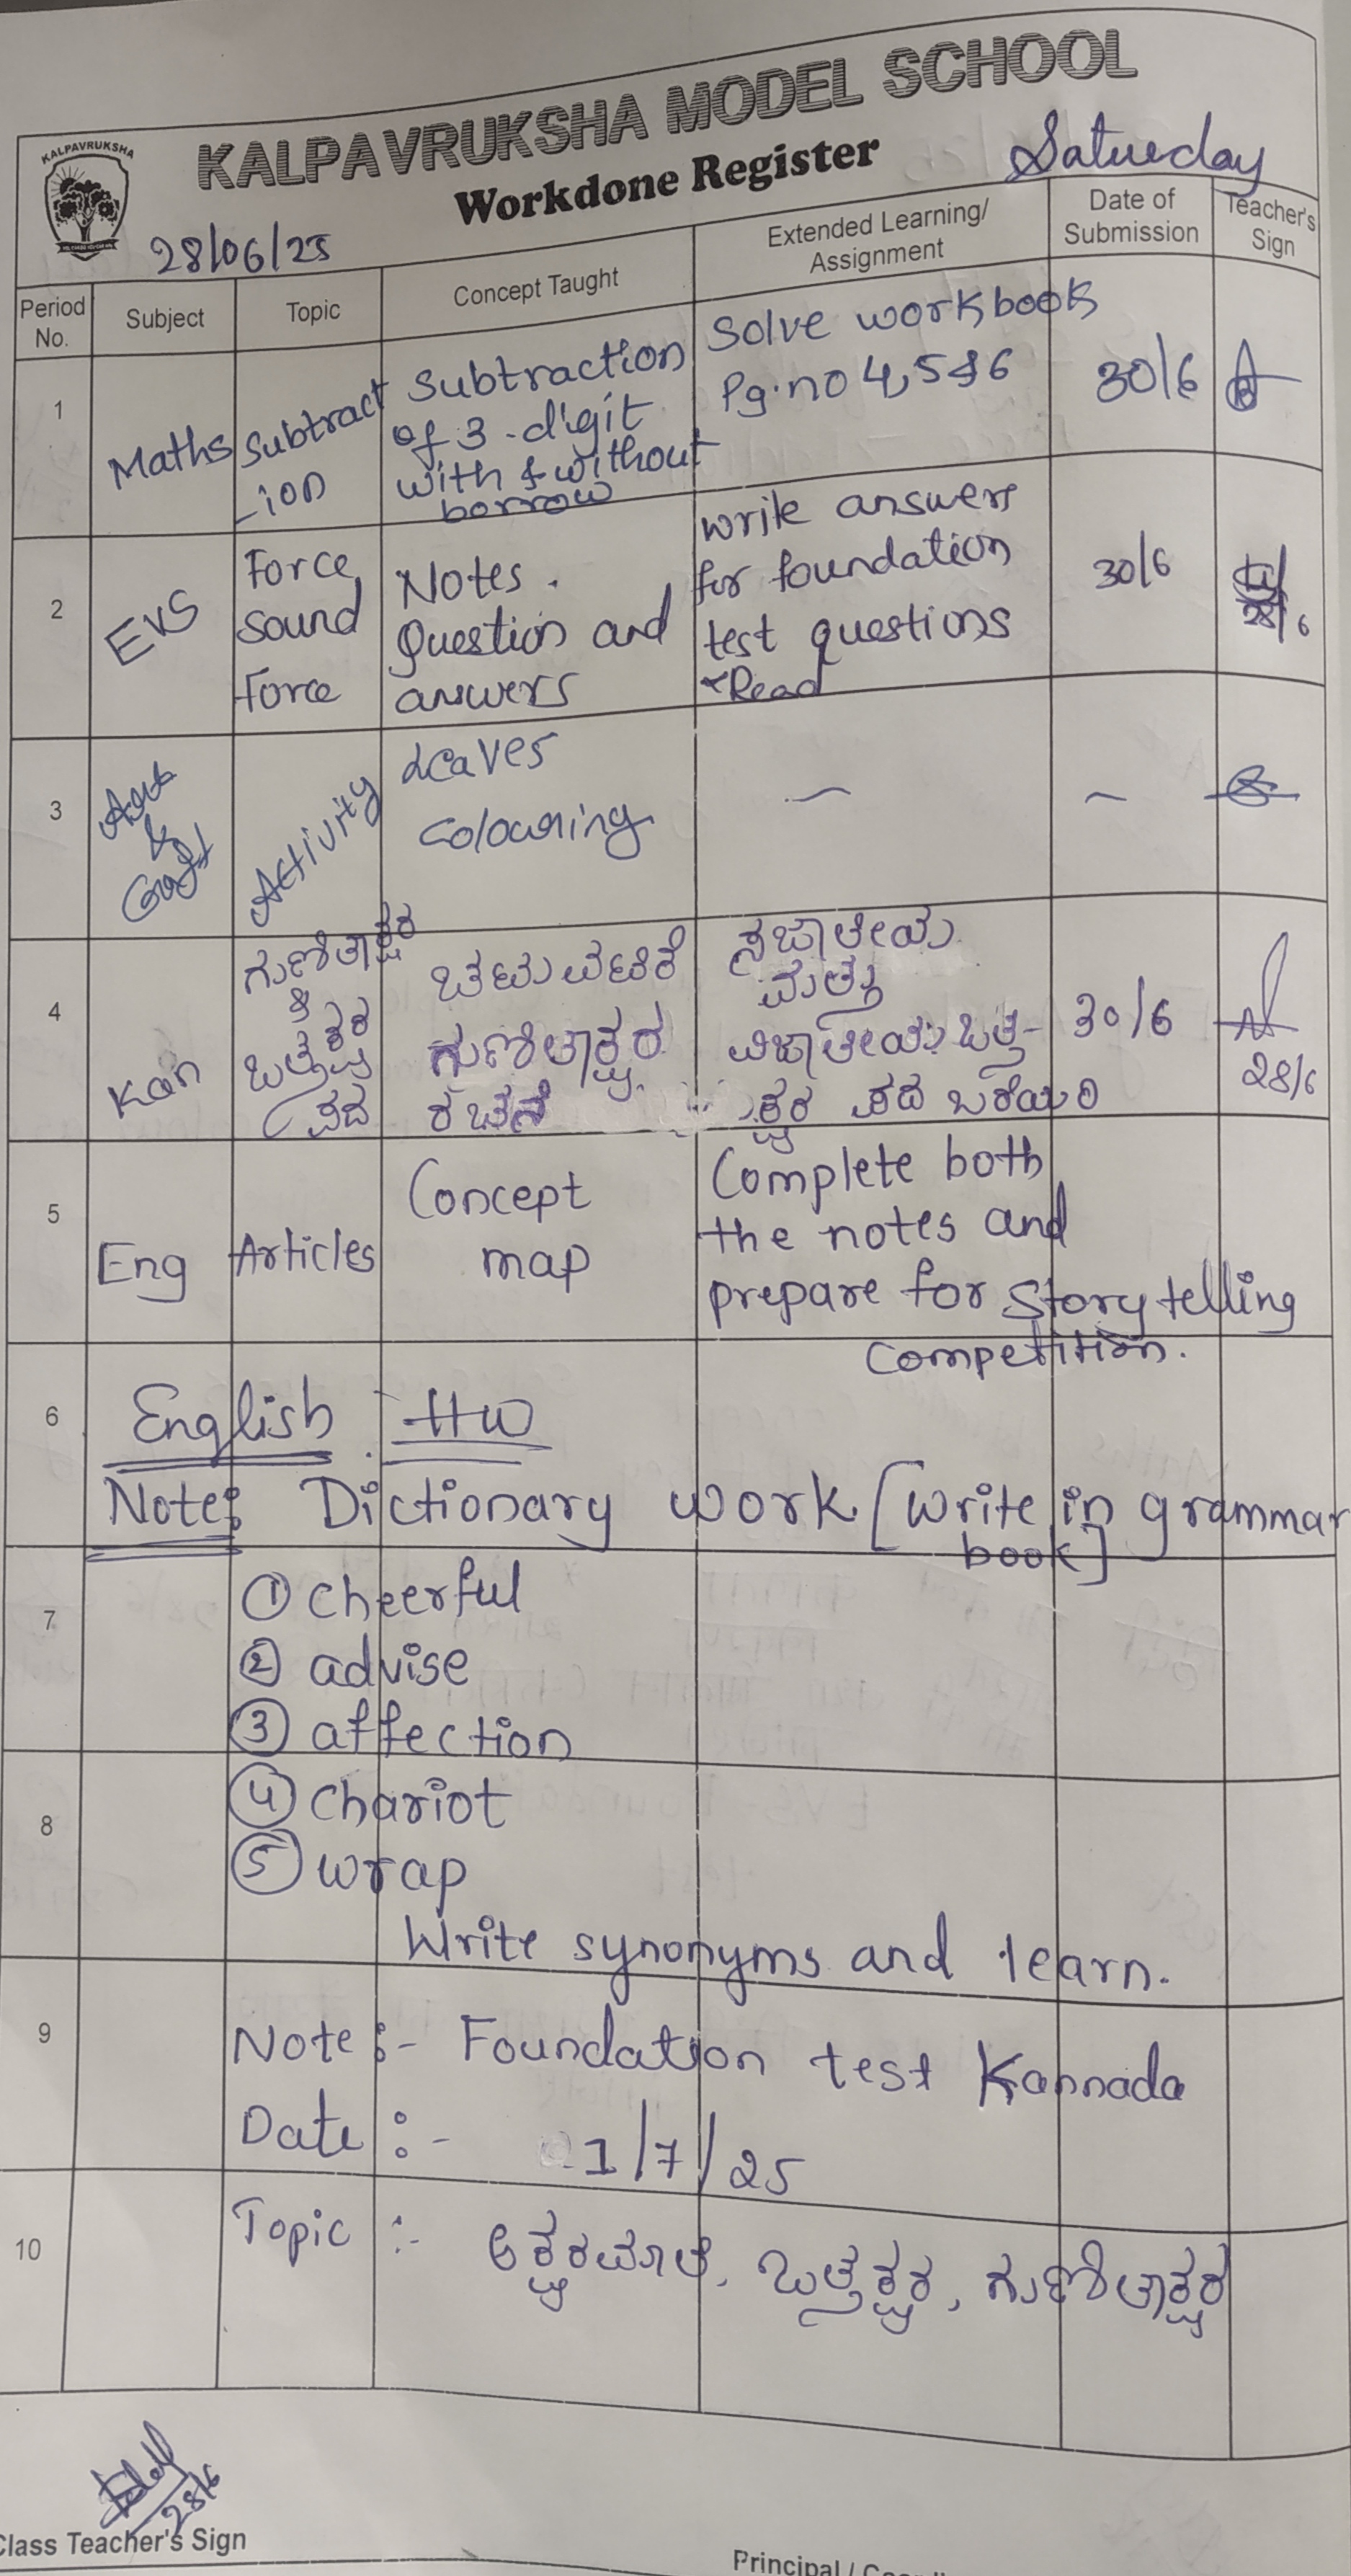 KALPAVRUKSHA MODEL SCHOOL
KALPAVRUKSHA
Workdone Register
Saturday
28/06/25
Period No.
Subject
Topic
Concept Taught
Extended Learning/
Assignment
Date of
Submission
Teacher's
Sign
1
Maths
Subtract
-ion
Subtraction
of 3-digit
with & without
borrow
Solve workbook
Pg.no 4,5&6
30/6
2
EVS
Force,
Sound
Force
Notes.
Question and
answers
write answers
for foundation
test questions
Read
30/6
28/6
3
&
Craft
Activity
Leaves
colouring
4
Kan
ಗುಣಿತಾಕ್ಷರ
ಒತ್ತಕ್ಷರ
ಪದ
ಚಟುವಟಿಕೆ
ಗುಣಿತಾಕ್ಷರ
ರಚನೆ
ಸಜಾತೀಯ
ಮತ್ತು
ವಿಜಾತೀಯ ಒತ್ತ-
ಕ್ಷರ ಪದ ಬರೆಯಿರಿ
30/6
28/6
5
Eng
Articles
Concept
map
Complete both
the notes and
prepare for Story telling
competition.
6
English HW
Note: Dictionary work [write in grammar
book]
7
① cheerful
② advise
③ affection
8
④ chariot
⑤ wrap
Write synonyms and learn.
9
Note :- Foundation test Kannada
Date :- 1/7/25
10
Topic :- ಅಕ್ಷರಮಾಲೆ, ಒತ್ತಕ್ಷರ, ಗುಣಿತಾಕ್ಷರ
28/6
Class Teacher's Sign
Principal /